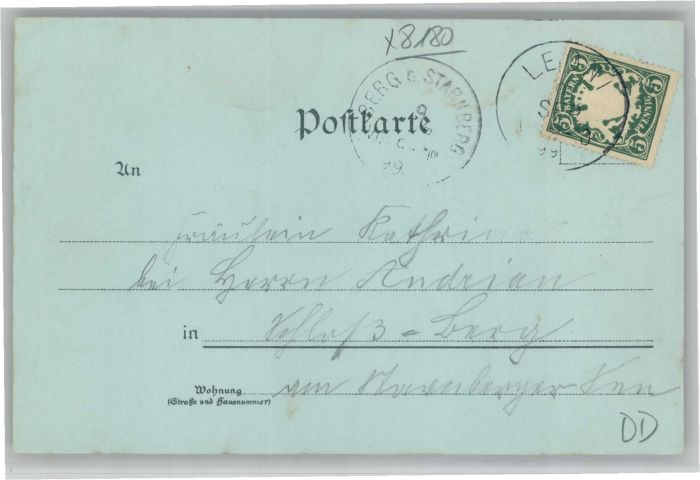 x8180
BERG b. STARNBERG
9
99.
LE
99
5 5
BAYERN
PFENNIG
5 5
Postkarte
An
Fräulein Kathrin
bei Herrn Andrian
in Schloß=Berg
Wohnung am Starnberger See
(Straße und Hausnummer)
DD